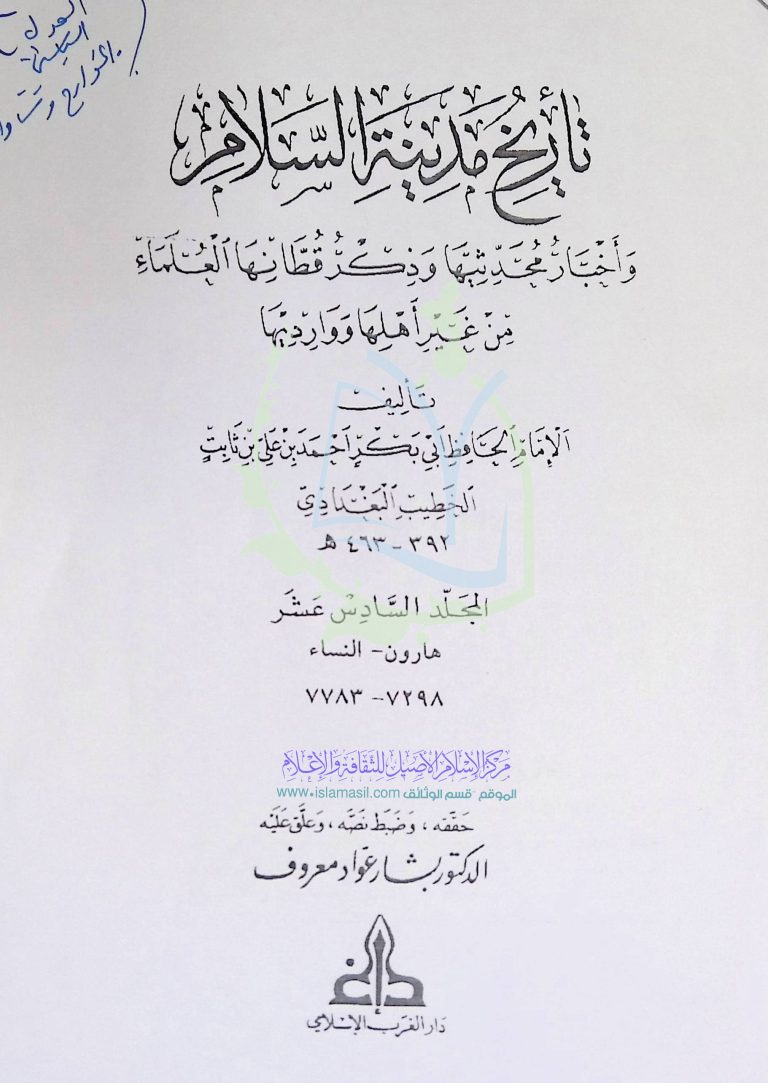 الخوارج
تأريخ مدينة السلام
وَأَخْبَارُ مُحَدِّثِيهَا وَذِكْرُ قُطَّانِهَا العُلَمَاءِ
مِنْ غَيْرِ أَهْلِهَا وَوَارِدِيهَا
تَأليف
الإِمَامِ الحَافِظِ أَبِي بَكْرٍ أَحْمَدَ بْنِ عَلِيِّ بْنِ ثَابِتٍ
الخَطِيبِ البَغْدَادِيِّ
٣٩٢ - ٤٦٣ هـ
المجَلّد السَّادِس عَشَر
هارون - النساء
٧٢٩٨ - ٧٧٨٣
مركز الإسلام الأصيل للثقافة والإعلام
الموقع - قسم الوثائق www.islamasil.com
حَقّقه ، وَضَبَط نَصَّه ، وَعَلّق عَلَيْه
الدكتور بشار عوّاد معروف
دار الغرب الإسلامي